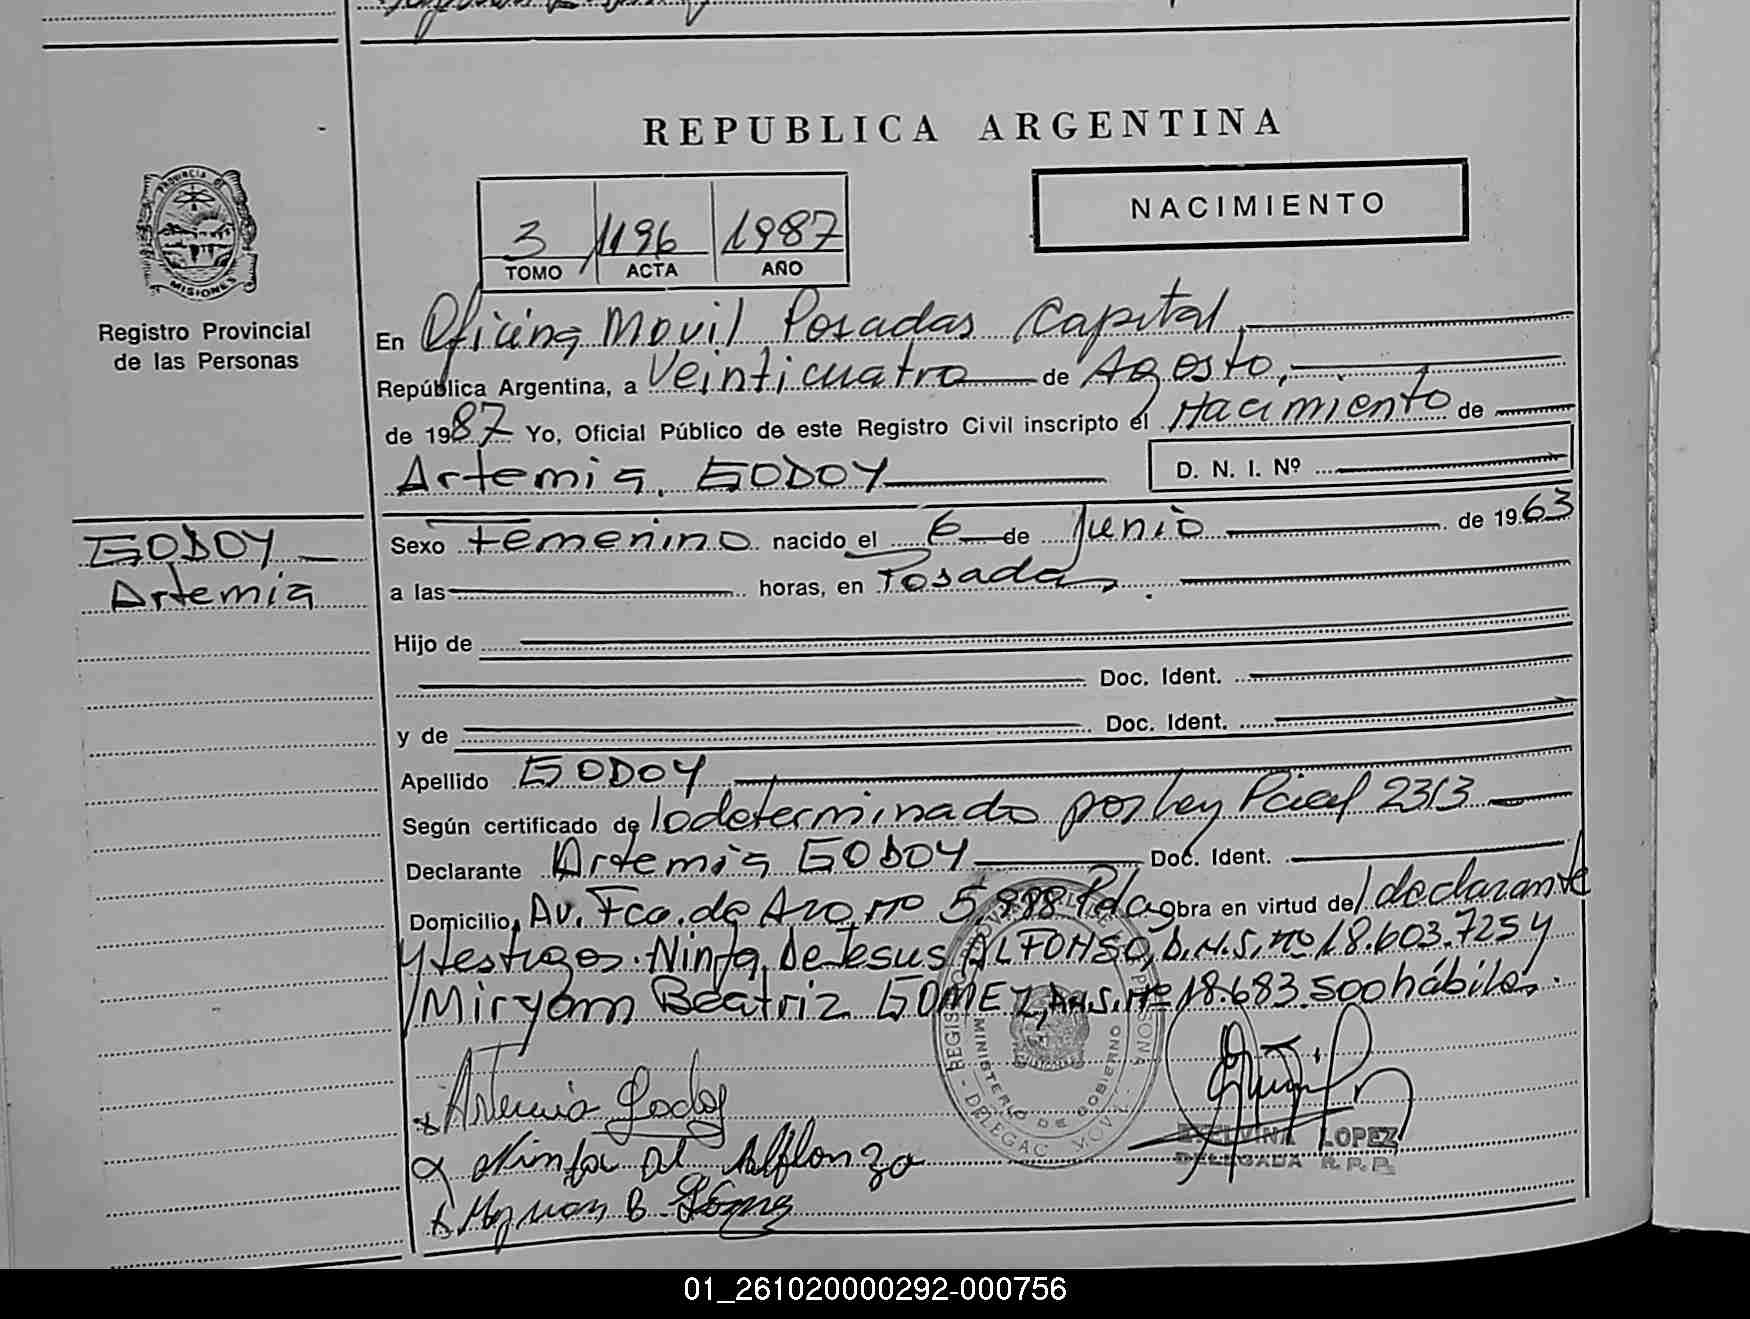 REPUBLICA ARGENTINA
NACIMIENTO
3 1196 1987
TOMO ACTA AÑO
PROVINCIA DE
MISIONES
Registro Provincial
de las Personas
En Oficina Movil Posadas Capital
República Argentina, a Veinticuatro de Agosto,
de 1987 Yo, Oficial Público de este Registro Civil inscripto el Nacimiento de
Artemia GODOY D. N. I. Nº
GODOY
Artemia
Sexo Femenino nacido el 6 de Junio de 1963
a las horas, en Posadas
Hijo de
Doc. Ident.
y de Doc. Ident.
Apellido GODOY
Según certificado de lo determinado por Ley Pcial 2313
Declarante Artemia GODOY Doc. Ident.
Domicilio Av. Fco. de Aro nº 5.888 Pdas obra en virtud de declarante
y testigos. Ninfa De Jesus ALFONSO, D.N.I. nº 18.603.725 y
Miryam Beatriz GOMEZ, D.N.I. nº 18.683.500 hábiles.
Artemia Godoy
Ninfa Alflonzo
B. Gómez
MINISTERIO DE GOBIERNO
DELEGAC MOVIL
LOPEZ
DELEGADA R.P.P.
01_261020000292-000756